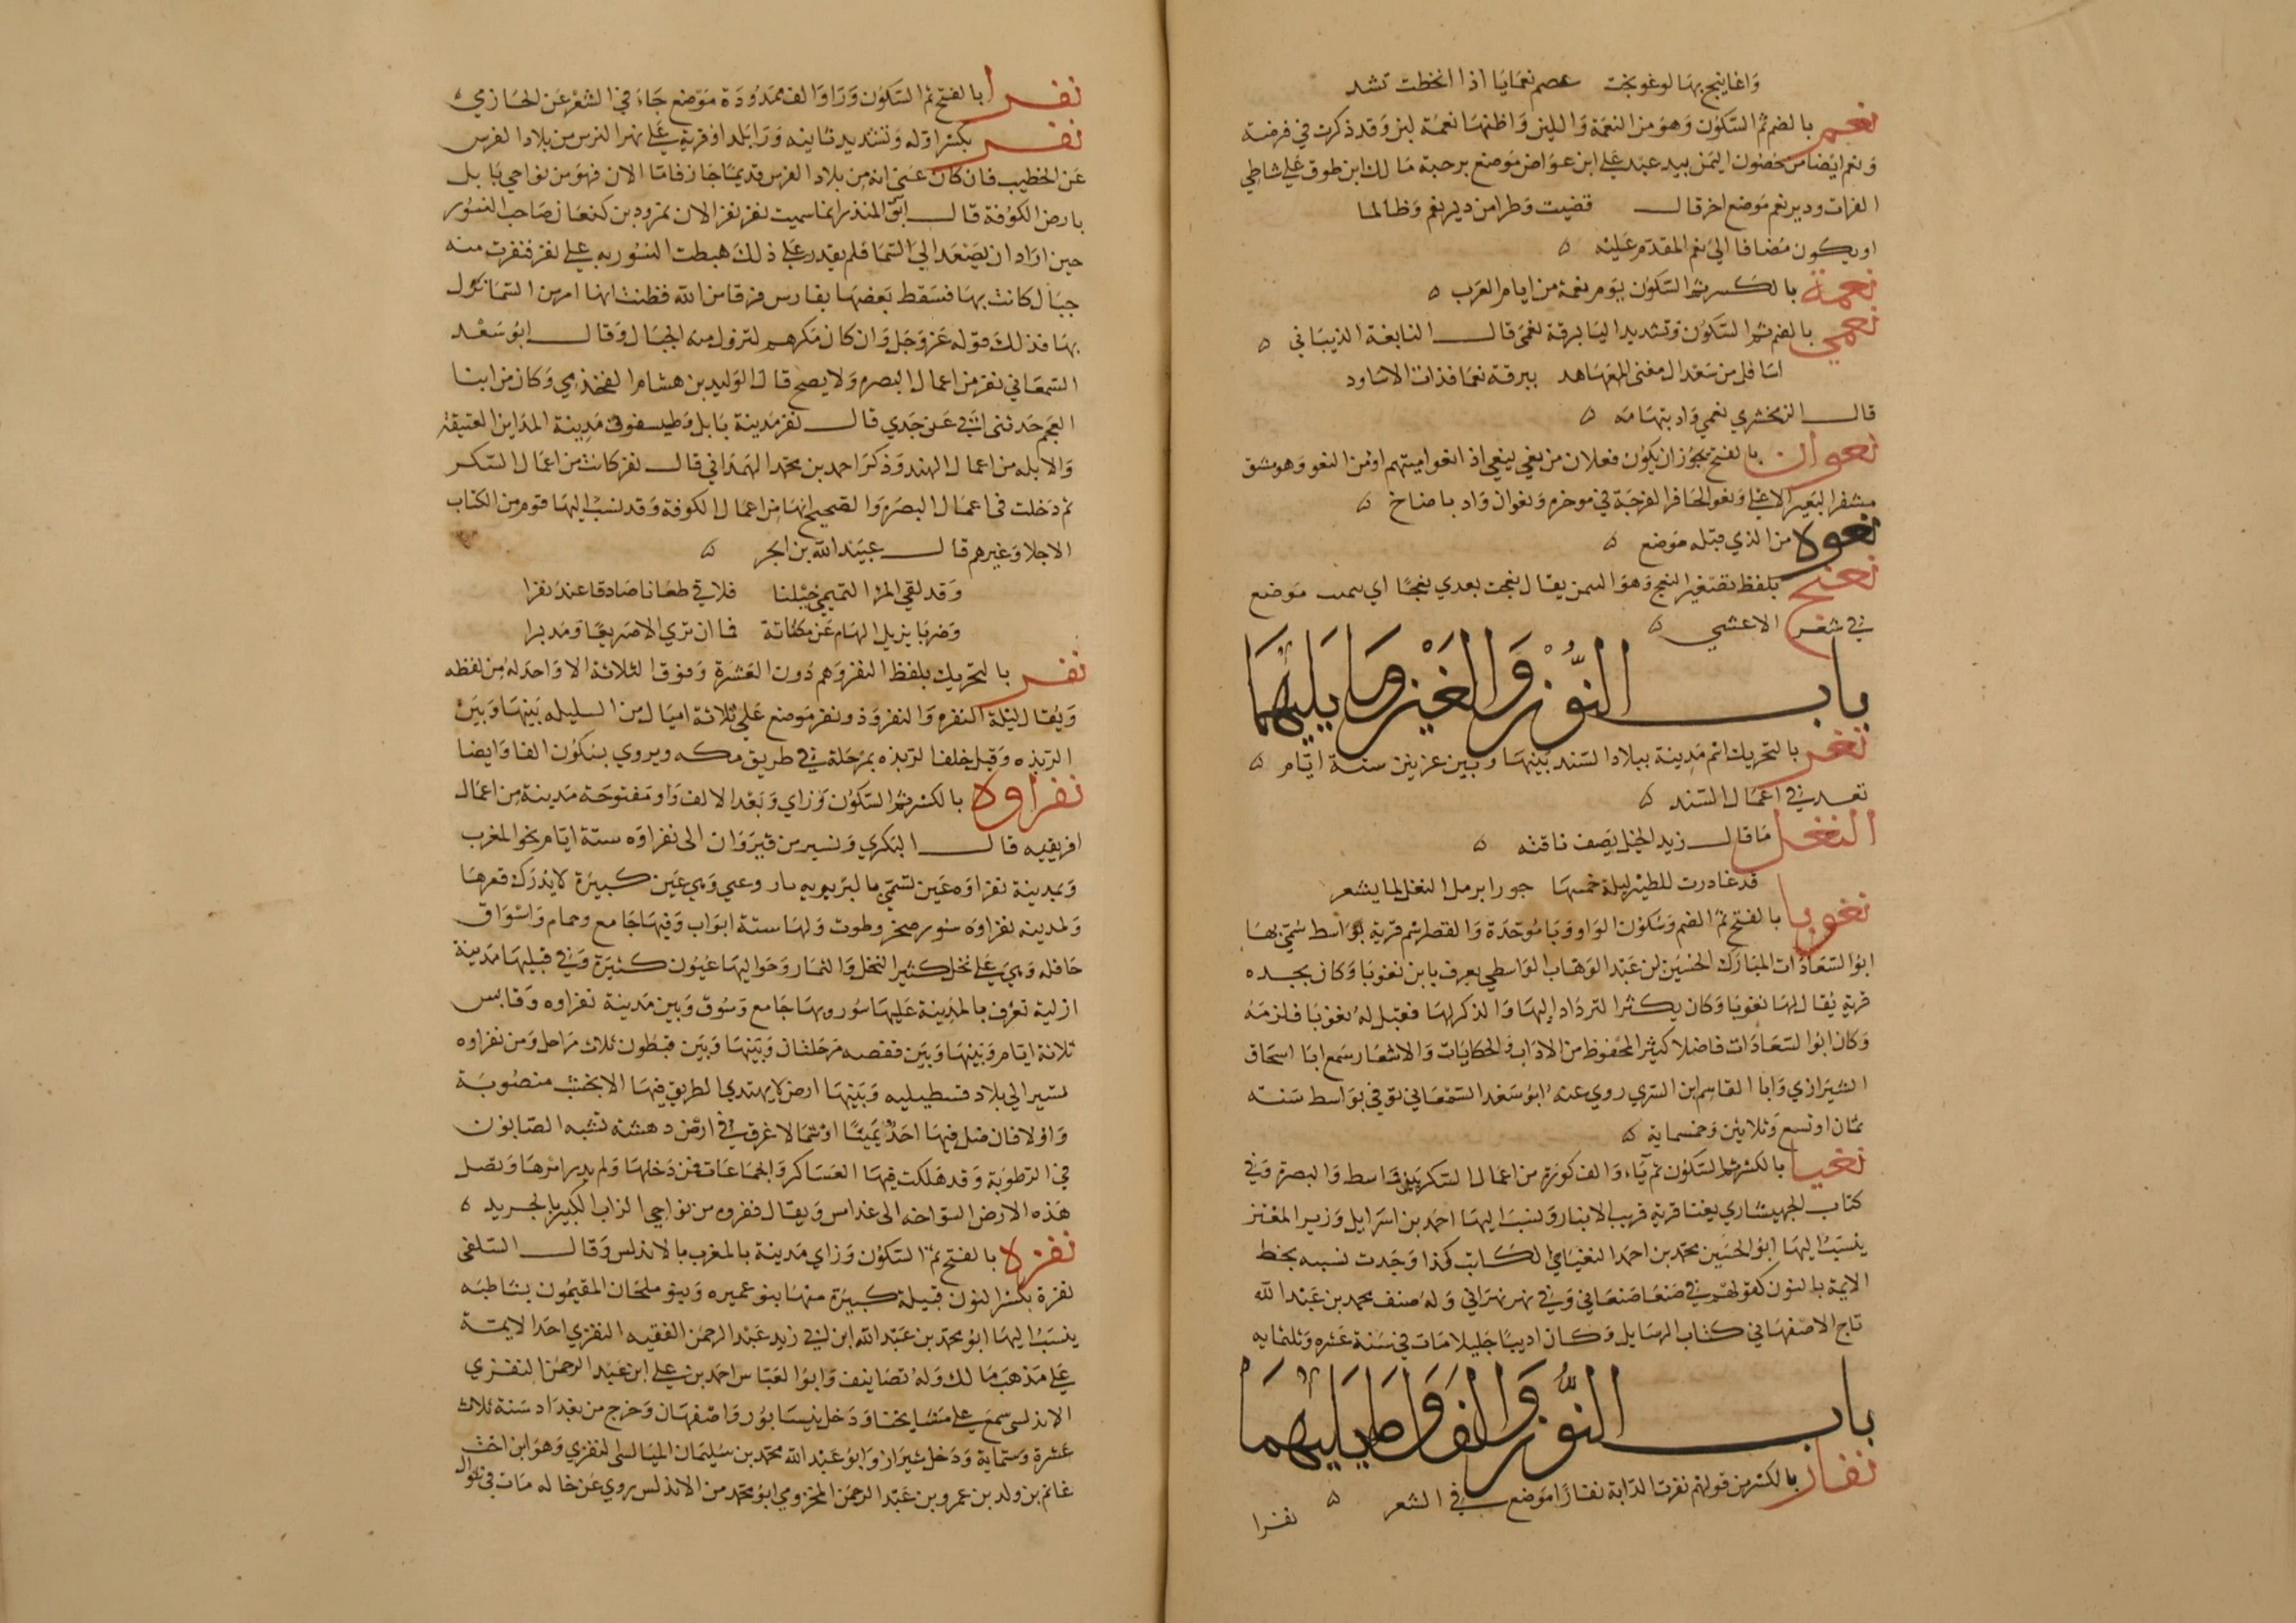 واغاينج بها لوغوبخت عصم نعمايا اذا انحطت تشد
نعم بالضم ثم السكون وهو من النعمة واللين واظنها نعمة لين وقد ذكرت في فرضة
ونعم ايضا من حصون اليمن بيد عبد علي ابن عواض موضع برحبة مالك ابن طوق علي شاطي
الفرات ودير نعم موضع اخر قال قضيت وطرا من دير نعم وظالما
او يكون مضافا الي نعم المقدم عليه ه
نعمة بالكسر ثم السكون يوم نعمة من ايام العرب ه
نعمي بالضم ثم السكون وتشديد اليا لبرقة نعمى قال النابغة الذيباني ه
اسافل من سعد ال مغنى المعهاهد ببرقة نعما فذات الاساود
قال الزمخشري نعمي واد بتهامه ه
نعوان بالفتح يجوز ان يكون فعلان من نعي ينعي اذ انعوا ميتهم او من النعو وهو مشق
مشفر البعير الاعلي ونعو الحافر الفرجة في موخره ونعوان واد باضاخ ه
نعوة من الذي قبله موضع ه
نعيج بلفظ تصغير النعج وهو السمن يقال نعجت بعدي نعجا اي سمنت موضع
في شعر الاعشي ه
باب النون والغين وما يليهما
نغر بالتحريك اسم مدينة ببلاد السند بينها وبين غزنين ستة ايام ه
تعد في اعمال السند ه
النغل ما قال زيد الخيل يصف ناقته ه
قد غادرت للطير ليلة خمسها جورا برمل النغل لما يشعر
نغوبا بالفتح ثم الضم وسكون الواو وبا موحدة والقصر اسم قرية بواسط سمي بها
ابو السعادات المبارك الحسين بن عبد الوهاب الواسطي يعرف بابن نغوبا وكان بجده
قرية يقال لها نغوبا وكان يكثر الترداد اليها والذكر لها فقيل له نغوبا فلزمه
وكان ابو السعادات فاضلا كثير المحفوظ من الاداب والحكايات والاشعار سمع ابا اسحاق
الشيرازي وابا القاسم ابن السري روي عنه ابو سعد السمعاني توفي بواسط سنة
ثمان او تسع وثلاثين وخمسماية ه
نغيا بالكسر ثم السكون ثم ياء والف كورة من اعمال السكر بين واسط والبصرة وفي
كتاب الجهيشاري نغيا قرية قريب الانبار ونسب اليها احمد بن اسرايل وزير المعتز
ينسب اليها ابو الحسين محمد بن احمد النغيامي الكاتب كذا وجدت نسبه بخط
الايمة بالنون كقولهم في صنعا صنعاني وفي نهر نهراني وله صنف محمد بن عبد الله
تاج الاصفهاني كتاب الرسايل وكان اديبا جليلا مات في سنة عشره وثلثمايه
باب النون والفا وما يليهما
نفار بالكسر من قولهم نفرت الدابة نفارا موضع في الشعر ه
نفرا
نفرا بالفتح ثم السكون ورا والف ممدودة موضع جاء في الشعر عن الحازمي ه
نفر بكسر اوله وتشديد ثانيه ورا بلد او قرية علي نهر النرس من بلاد الفرس
عن الخطيب فان كان عنى انه من بلاد الفرس قديما جاز فاما الان فهو من نواحي بابل
بارض الكوفة قال ابو المنذر انما سميت نفر نفر الان نمرود بن كنعان صاحب النسور
حين اراد ان يصعد الي السما فلم يقدر علي ذلك هبطت النسور به علي نفر فنفرت منه
جبال كانت بها فسقط بعضها بفارس فرقا من الله فظنت انها امر من السما نزل
بها فذلك قوله عز وجل وان كان مكرهم لتزول منه الجبال وقال ابو سعد
السمعاني نفر من اعمال البصره ولا يصح قال الوليد بن هشام الفخذمي وكان من ابنا
العجم حدثنى ابي عن جدي قال نفر مدينة بابل وطيسفون مدينة المداين العتيقة
والابله من اعمال الهند وذكر احمد بن محمد الهمداني قال نفر كانت من اعمال السكر
ثم دخلت في اعمال البصره والصحيح انها من اعمال الكوفة وقد نسب اليها قوم من الكتاب
الاجلا وغيرهم قال عبيد الله بن الحر ه
وقد لقي المر التميمي خيلنا فلاقي طعانا صادقا عند نفرا
وضربا يزيل الهام عن مكناتة فما ان تري الا صريعا ومدبرا
نفر بالتحريك بلفظ النفر وهم دون العشرة وفوق الثلاثة الا واحد له من لفظه
ويقال ليلة النفر والنفر وذو نفر موضع علي ثلاثة اميال من السليله بينها وبين
الربذه وقيل خلف الربذه بمرحلة في طريق مكه ويروي بسكون الفا وايضا
نفزاوة بالكسر ثم السكون وزاي وبعد الالف واو مفتوحة مدينة من اعمال
افريقيه قال البكري وتسير من قيروان الى نفزاوه ستة ايام نحو المغرب
وبمدينة نفزاوه عين تسمي بالبربريه تاروغي وهي عين كبيرة لا يدرك قعرها
ولمدينه نفزاوه سور صخر وطوب ولها ستة ابواب وفيها جامع وحمام واسواق
حافله وهي علي نخل كثير النخل والثمار وحواليها عيون كثيرة وفي قبليها مدينة
ازلية تعرف بالمدينة عليها سور وبها جامع وسوق وبين مدينة نفزاوه وقابس
ثلاثة ايام وبينها وبين قفصه مرحلتان وبينها وبين قبطون ثلاث مراحل ومن نفزاوه
تسير الي بلاد قسطيليه وبينها ارض لا يهتدي الطريق فيها الا بخشب منصوبة
واولا فان ضل فيها احد يمينا او شمالا غرق في ارض دهشة تشبه الصابون
في الرطوبة وقد هلكت فيها العساكر والجماعات ممن دخلها ولم يدر امرها وتصل
هذه الارض السواخه الى غدامس ويقال نفزوه من نواحي الزاب الكبير بالجريد ه
نفزة بالفتح ثم السكون وزاي مدينة بالمغرب بالاندلس وقال السلفي
نفزة بكسر النون قبيلة كبيرة منها بنو عميره وبنو ملحان المقيمون بشاطبه
ينسب اليها ابو محمد بن عبد الله ابن ابي زيد عبد الرحمن الفقيه النفزي احد الايمة
علي مذهب مالك وله تصانيف وابو العباس احمد بن علي ابن عبد الرحمن النفزي
الاندلسي سمع علي مشايخنا ودخل نيسابور واصفهان وخرج من بغداد سنة ثلاث
عشرة وستماية ودخل شيراز وابو عبد الله محمد بن سليمان الميالسي النفزي وهو ابن اخت
غانم بن وليد بن عمرو بن عبد الرحمن المخزومي ابو محمد من الاندلس روي عن خاله مات في شوال